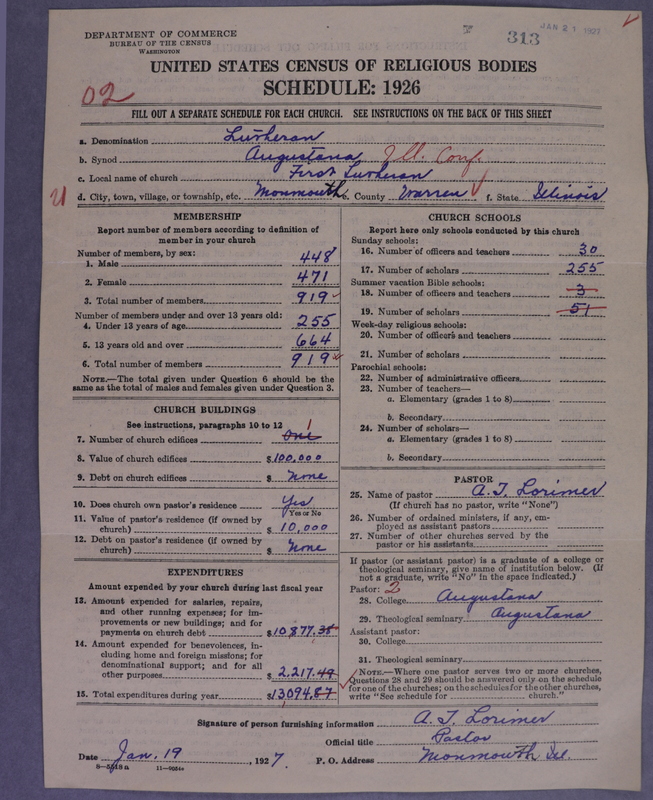 DEPARTMENT OF COMMERCE
BUREAU OF THE CENSUS
WASHINGTON
313
JAN 21 1927
UNITED STATES CENSUS OF RELIGIOUS BODIES
SCHEDULE: 1926
02
FILL OUT A SEPARATE SCHEDULE FOR EACH CHURCH. SEE INSTRUCTIONS ON THE BACK OF THIS SHEET
a. Denomination Lutheran
b. Synod Augustana Ill. Conf.
c. Local name of church First Lutheran
d. City, town, village, or township, etc. Monmouth e. County Warren f. State Illinois
MEMBERSHIP
Report number of members according to definition of
member in your church
Number of members, by sex:
1. Male 448
2. Female 471
3. Total number of members 919
Number of members under and over 13 years old:
4. Under 13 years of age 255
5. 13 years old and over 664
6. Total number of members 919
NOTE.—The total given under Question 6 should be the
same as the total of males and females given under Question 3.
CHURCH BUILDINGS
See instructions, paragraphs 10 to 12
7. Number of church edifices One 1
8. Value of church edifices $100,000
9. Debt on church edifices $ None
10. Does church own pastor's residence Yes
Yes or No
11. Value of pastor's residence (if owned by
church) $10,000
12. Debt on pastor's residence (if owned by
church) $ None
EXPENDITURES
Amount expended by your church during last fiscal year
13. Amount expended for salaries, repairs,
and other running expenses; for im-
provements or new buildings; and for
payments on church debt $10,877.38
14. Amount expended for benevolences, in-
cluding home and foreign missions; for
denominational support; and for all
other purposes $2,217.49
15. Total expenditures during year $13,094.87
CHURCH SCHOOLS
Report here only schools conducted by this church
Sunday schools:
16. Number of officers and teachers 30
17. Number of scholars 255
Summer vacation Bible schools:
18. Number of officers and teachers 3
19. Number of scholars 51
Week-day religious schools:
20. Number of officers and teachers
21. Number of scholars
Parochial schools:
22. Number of administrative officers
23. Number of teachers—
a. Elementary (grades 1 to 8)
b. Secondary
24. Number of scholars—
a. Elementary (grades 1 to 8)
b. Secondary
PASTOR
25. Name of pastor A. T. Lorimer
(If church has no pastor, write "None")
26. Number of ordained ministers, if any, em-
ployed as assistant pastors
27. Number of other churches served by the
pastor or his assistants
If pastor (or assistant pastor) is a graduate of a college or
theological seminary, give name of institution below. (If
not a graduate, write "No" in the space indicated.)
Pastor: 2
28. College Augustana
29. Theological seminary Augustana
Assistant pastor:
30. College
31. Theological seminary
NOTE.—Where one pastor serves two or more churches,
Questions 28 and 29 should be answered only on the schedule
for one of the churches; on the schedules for the other churches,
write "See schedule for church."
Signature of person furnishing information A. T. Lorimer
Official title Pastor
Date Jan. 19, 1927 P. O. Address Monmouth Ill.